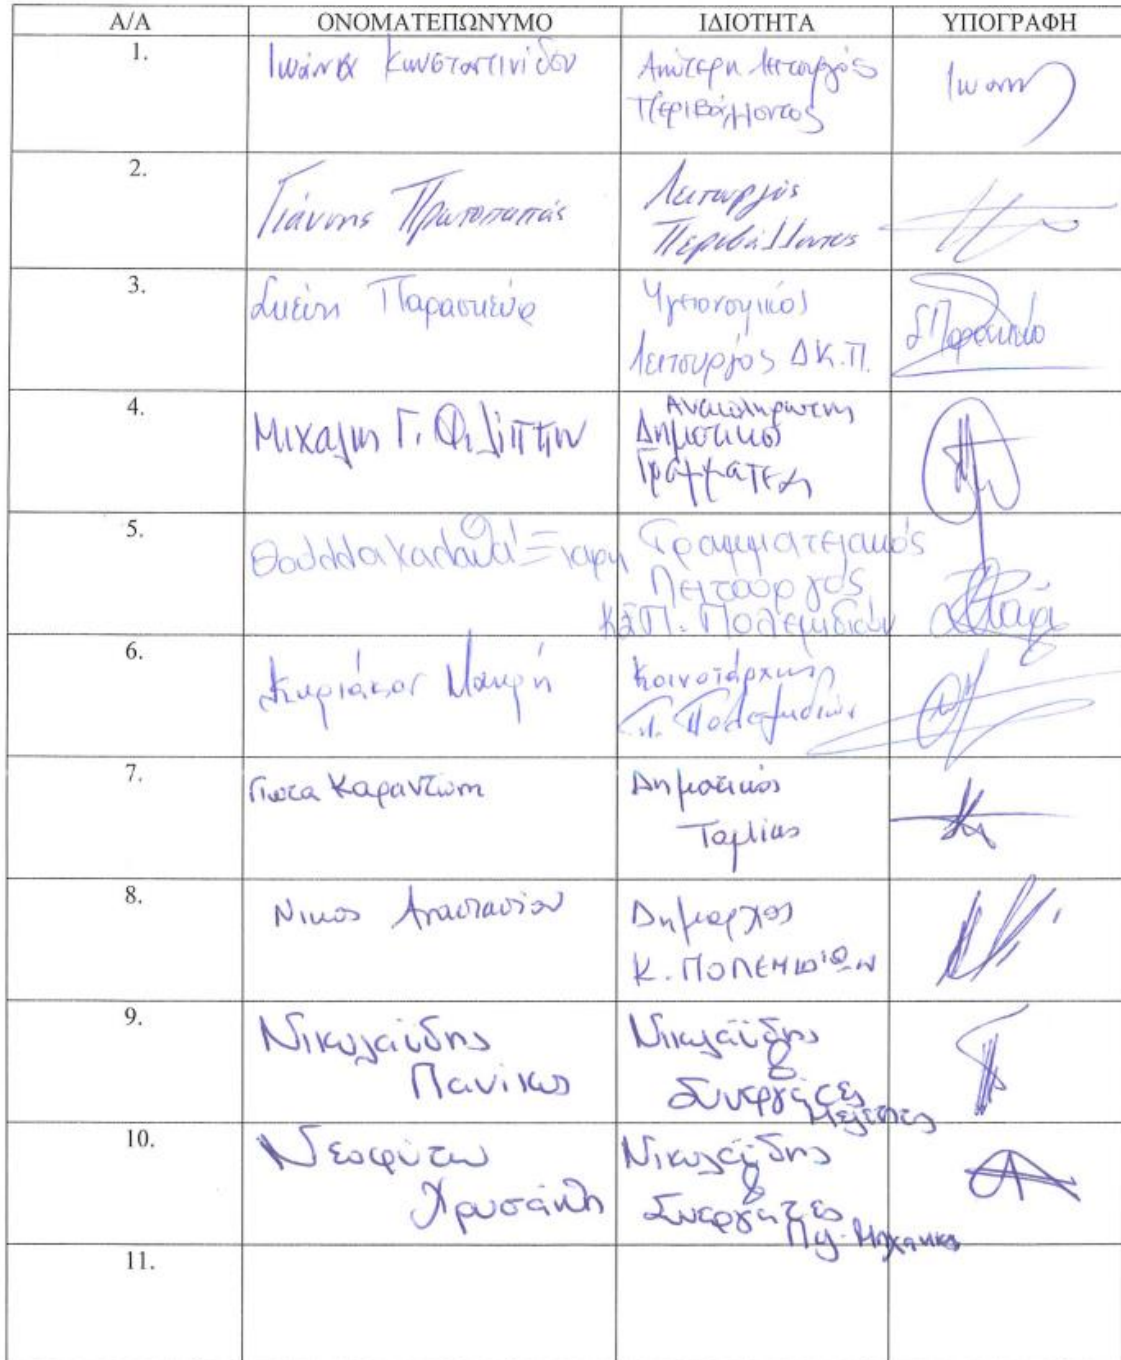 Α/Α ΟΝΟΜΑΤΕΠΩΝΥΜΟ ΙΔΙΟΤΗΤΑ ΥΠΟΓΡΑΦΗ
1. Ιωάννα Κωνσταντινίδου Ανώτερη Λειτουργός
Περιβάλλοντος
2. Γιάννης Πρωτοπαπάς Λειτουργός
Περιβάλλοντος
3. Σκεύη Παρασκευά Υγειονομικός
Λειτουργός Δ.Κ.Π.
4. Μιχάλης Γ. Φιλίππου Αναπληρωτής
Δημοτικός
Γραμματέας
5. Γραμματειακός
Λειτουργός
Κ. Πολεμιδιών
6. Κυριάκος Μακρή Κοινοτάρχης
Π. Πολεμιδιών
7. Γιώτα Καραντώνη Δημοτικός
Ταμίας
8. Νίκος Αναστασίου Δήμαρχος
Κ. ΠΟΛΕΜΙΔΙΩΝ
9. Νικολαΐδης Νικολαΐδης
Πανίκος &
Συνεργάτες
Μελετητές
10. Νεοφύτου Νικολαΐδης
Χρυσάνθη &
Συνεργάτες
Πολ. Μηχανικός
11.